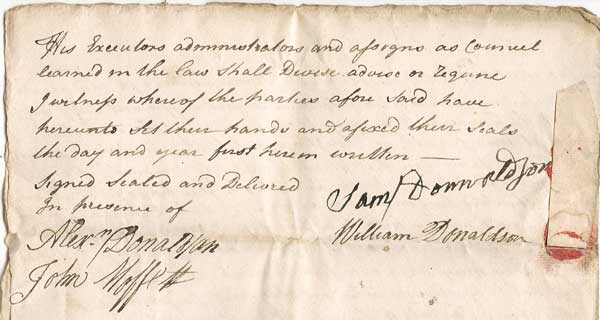 His Executors administrators and assigns as Councel
learned in the law shall Devise advise or Require
In witness whereof the parties afore said have
hereunto Set their hands and afixed their Seals
the day and year first herein written —
Signed Sealed and Delivred
In presence of
Saml Donnaldson
William Donaldson
Alexr. Donaldson
John Moffett